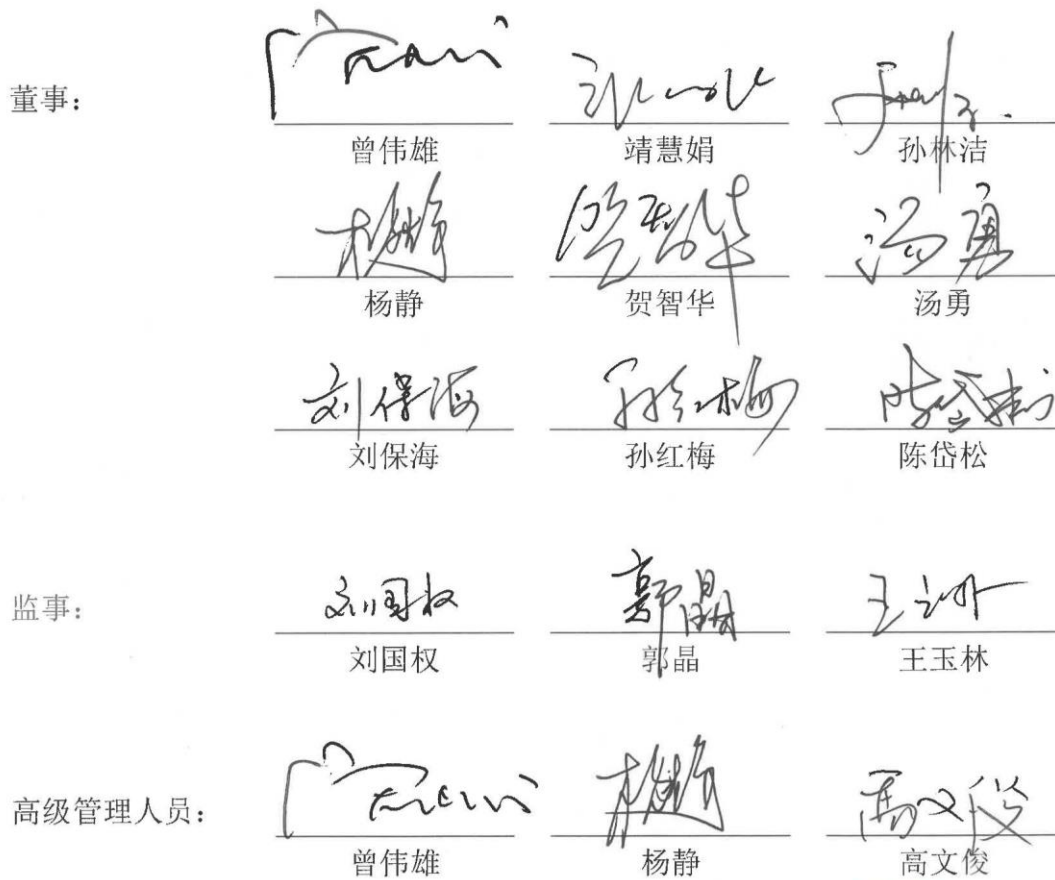 董事：
曾伟雄 靖慧娟 孙林洁
杨静 贺智华 汤勇
刘保海 孙红梅 陈岱松
监事：
刘国权 郭晶 王玉林
高级管理人员：
曾伟雄 杨静 高文俊